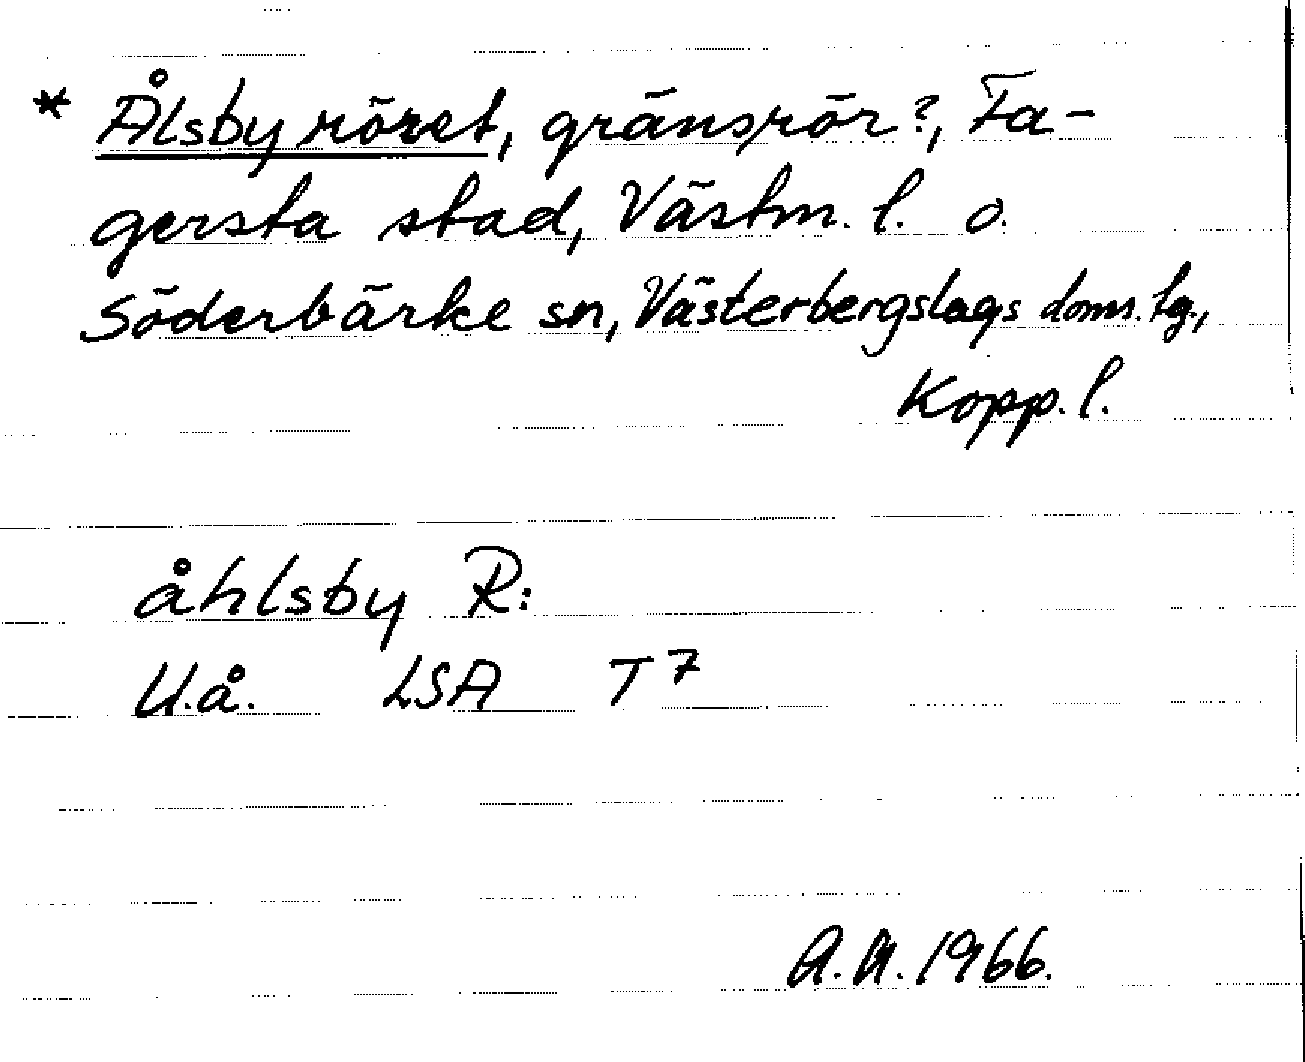 * Ålsby röret, gränsrör?, Fa-
gersta stad, Västm. l. o.
Söderbärke sn, Västerbergslags doms. lg.,
Kopp. l.
åhlsby R:
U.å. LSA T 7
A.A. 1966.